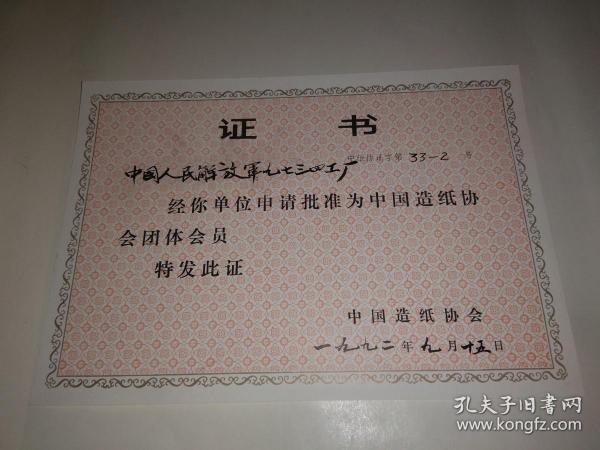 证 书
字第 33-2 号
中国人民解放軍九七三四工厂
经你单位申请批准为中国造纸协
会团体会员
特发此证
中国造纸协会
一九九二年九月十五日
孔夫子旧书网
www.kongfz.com